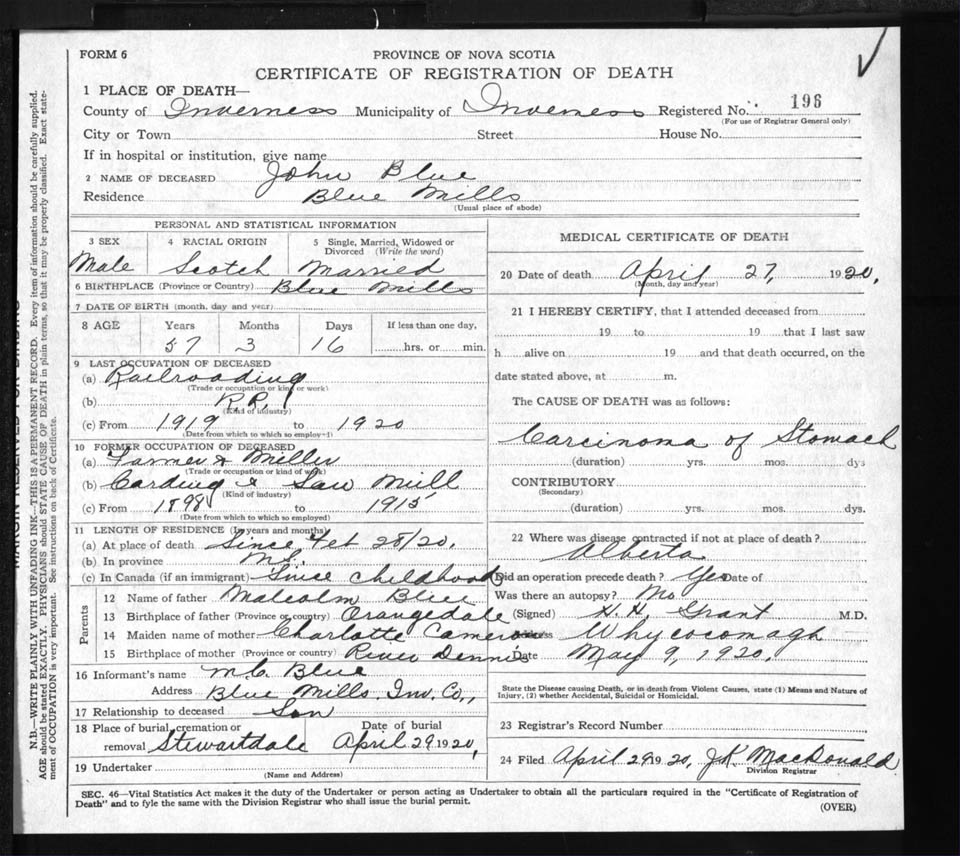 FORM 6
PROVINCE OF NOVA SCOTIA
CERTIFICATE OF REGISTRATION OF DEATH
1 PLACE OF DEATH—
County of Inverness Municipality of Inverness Registered No. 196
(For use of Registrar General only)
City or Town Street House No.
If in hospital or institution, give name
2 NAME OF DECEASED John Blue
Residence Blue Mills
(Usual place of abode)
PERSONAL AND STATISTICAL INFORMATION
3 SEX 4 RACIAL ORIGIN 5 Single, Married, Widowed or Divorced (Write the word)
Male Scotch Married
6 BIRTHPLACE (Province or Country) Blue Mills
7 DATE OF BIRTH (month, day and year)
8 AGE Years Months Days If less than one day,
57 3 16 hrs. or min.
9 LAST OCCUPATION OF DECEASED
(a) Railroading
(Trade or occupation or kind or work)
(b) R.R.
(Kind of industry)
(c) From 1919 to 1920
(Date from which to which so employed)
10 FORMER OCCUPATION OF DECEASED
(a) Farmer & Miller
(Trade or occupation or kind of work)
(b) Carding & Saw Mill
(Kind of industry)
(c) From 1898 to 1915
(Date from which to which so employed)
11 LENGTH OF RESIDENCE (In years and months)
(a) At place of death Since Feb 28/20.
(b) In province
(c) In Canada (if an immigrant) Since childhood
Parents
12 Name of father Malcolm Blue
13 Birthplace of father (Province or country) Orangedale
14 Maiden name of mother Charlotte Cameron
15 Birthplace of mother (Province or country) River Dennis
16 Informant's name M.C. Blue
Address Blue Mills, Inv. Co.,
17 Relationship to deceased Son
18 Place of burial, cremation or removal Stewartdale
Date of burial April 29 1920,
19 Undertaker
(Name and Address)
MEDICAL CERTIFICATE OF DEATH
20 Date of death April 27, 1920,
(Month, day and year)
21 I HEREBY CERTIFY, that I attended deceased from
19 to 19 that I last saw
h alive on 19 and that death occurred, on the
date stated above, at m.
The CAUSE OF DEATH was as follows:
Carcinoma of Stomach
(duration) yrs. mos. dys
CONTRIBUTORY
(Secondary)
(duration) yrs. mos. dys.
22 Where was disease contracted if not at place of death?
Alberta
Did an operation precede death? Yes Date of
Was there an autopsy? No
(Signed) H.H. Grant M.D.
Address Whycocomagh
Date May 9, 1920,
State the Disease causing Death, or in death from Violent Causes, state (1) Means and Nature of
Injury, (2) whether Accidental, Suicidal or Homicidal.
23 Registrar's Record Number
24 Filed April 29 1920, J.K. MacDonald
Division Registrar
SEC. 46—Vital Statistics Act makes it the duty of the Undertaker or person acting as Undertaker to obtain all the particulars required in the "Certificate of Registration of
Death" and to fyle the same with the Division Registrar who shall issue the burial permit.
(OVER)
N.B.—WRITE PLAINLY WITH UNFADING INK—THIS IS A PERMANENT RECORD. Every item of information should be carefully supplied.
AGE should be stated EXACTLY. PHYSICIANS should STATE CAUSE OF DEATH in plain terms, so that it may be properly classified. Exact state-
ment of OCCUPATION is very important. See instructions on back of Certificate.